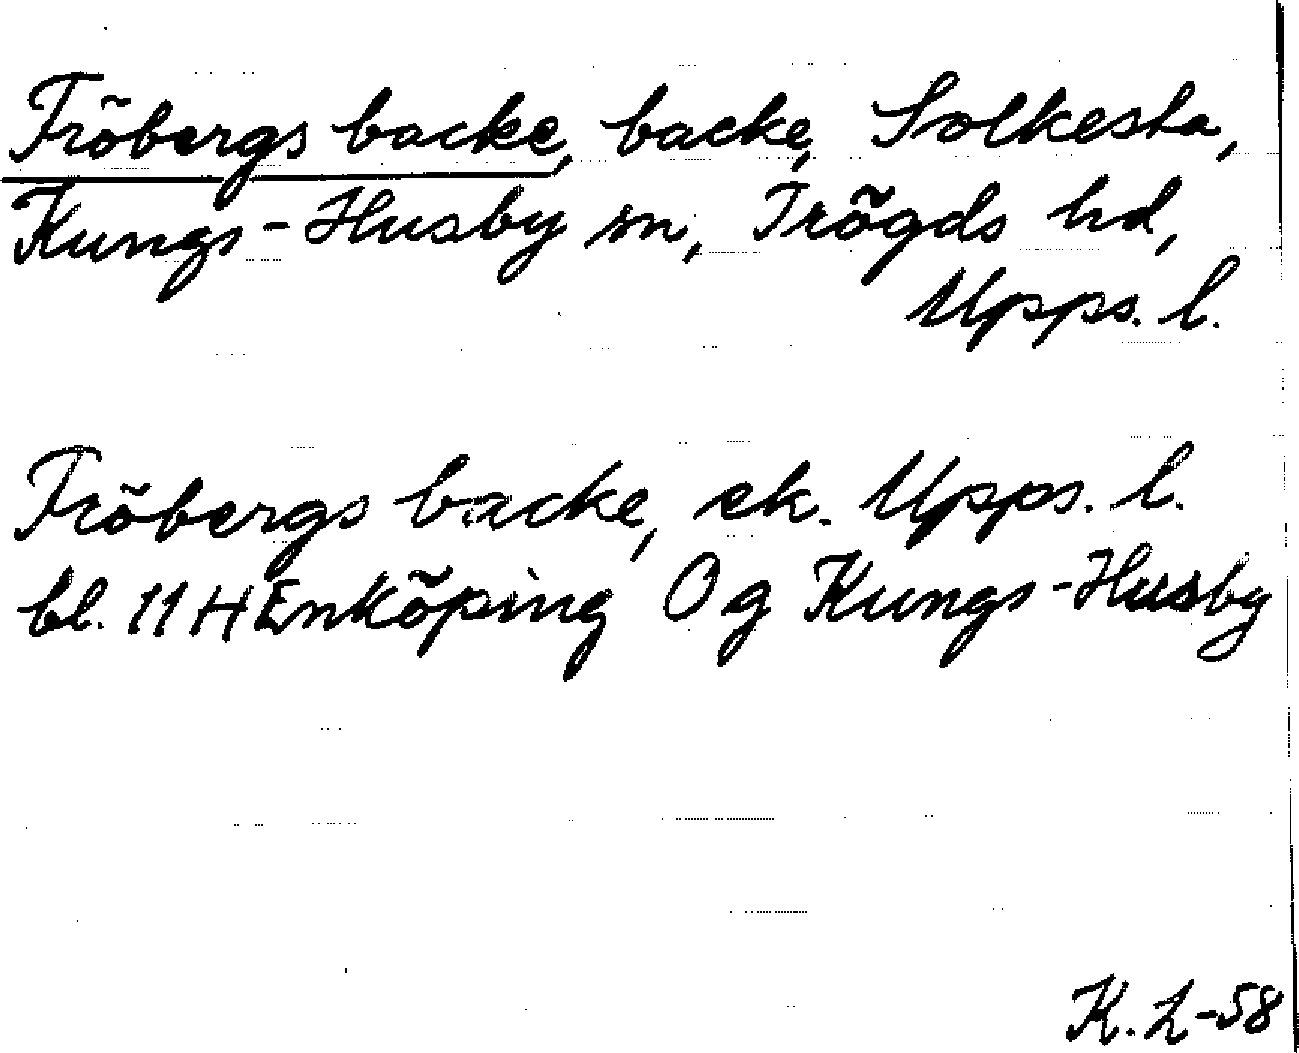 Fröbergs backe, backe, Solkesta,
Kungs-Husby sn, Trögds hd,
Upps. l.
Fröbergs backe, ek. Upps. l.
bl. 11 H Enköping Og Kungs-Husby
K. L-58